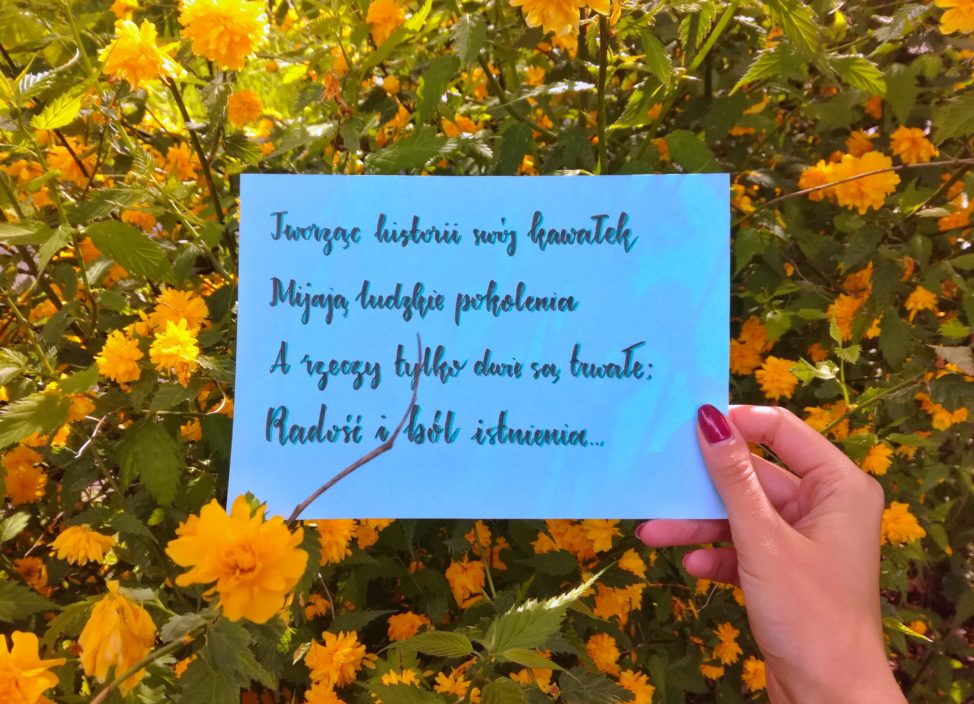 Tworząc historii swój kawałek
Mijają ludzkie pokolenia
A rzeczy tylko dwie są trwałe:
Radość i ból istnienia...